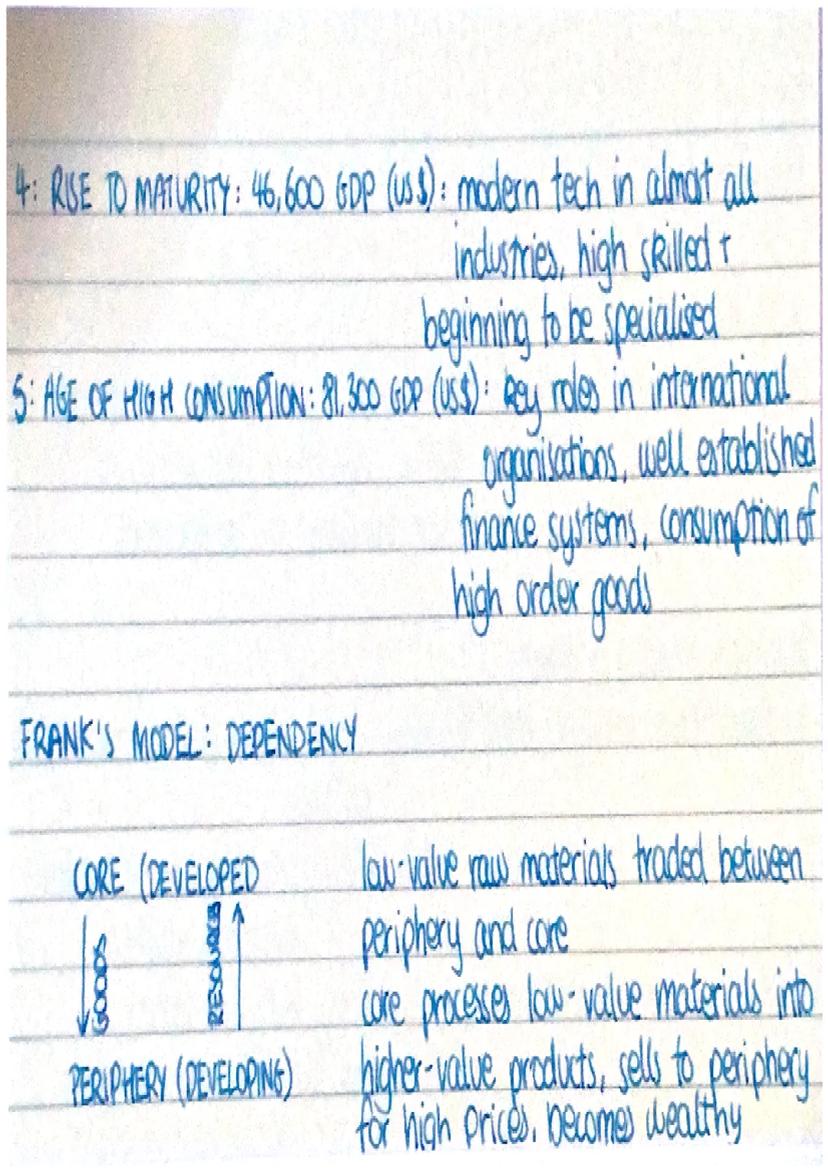 4: RISE TO MATURITY: 46,600 GDP (US $): modern tech in almost all
industries, high skilled +
beginning to be specialised
5: AGE OF HIGH CONSUMPTION: 81,300 GDP (US$): key roles in international
organisations, well established
finance systems, consumption of
high order goods
FRANK'S MODEL: DEPENDENCY
CORE (DEVELOPED
GOODS
RESOURCES
PERIPHERY (DEVELOPING)
low-value raw materials traded between
periphery and core
core processes low-value materials into
higher-value products, sells to periphery
for high prices. becomes wealthy